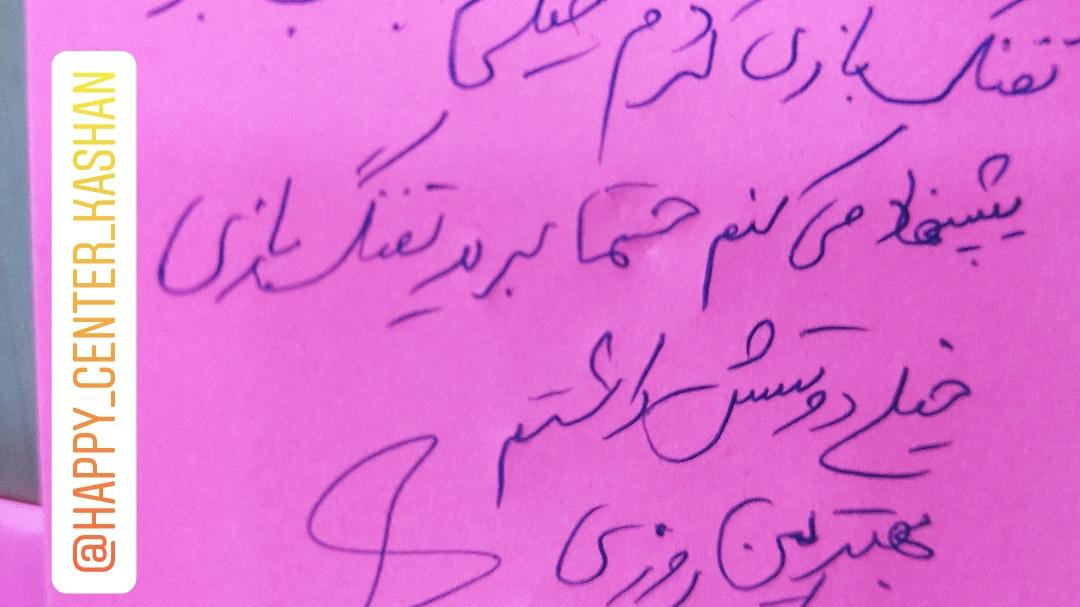 تفنگ بازی کردم خیلی
پیشنهاد می کنم حتما برید تفنگ بازی
خیلی دوستش داشتم
بهترین روزی
@HAPPY_CENTER_KASHAN